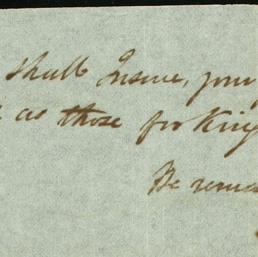 shall Insure, your
as those for King
Be